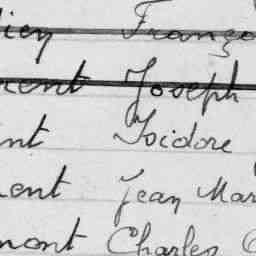 ien Franço
ment Joseph
nt Isidore
ment Jean Mar
mont Charles